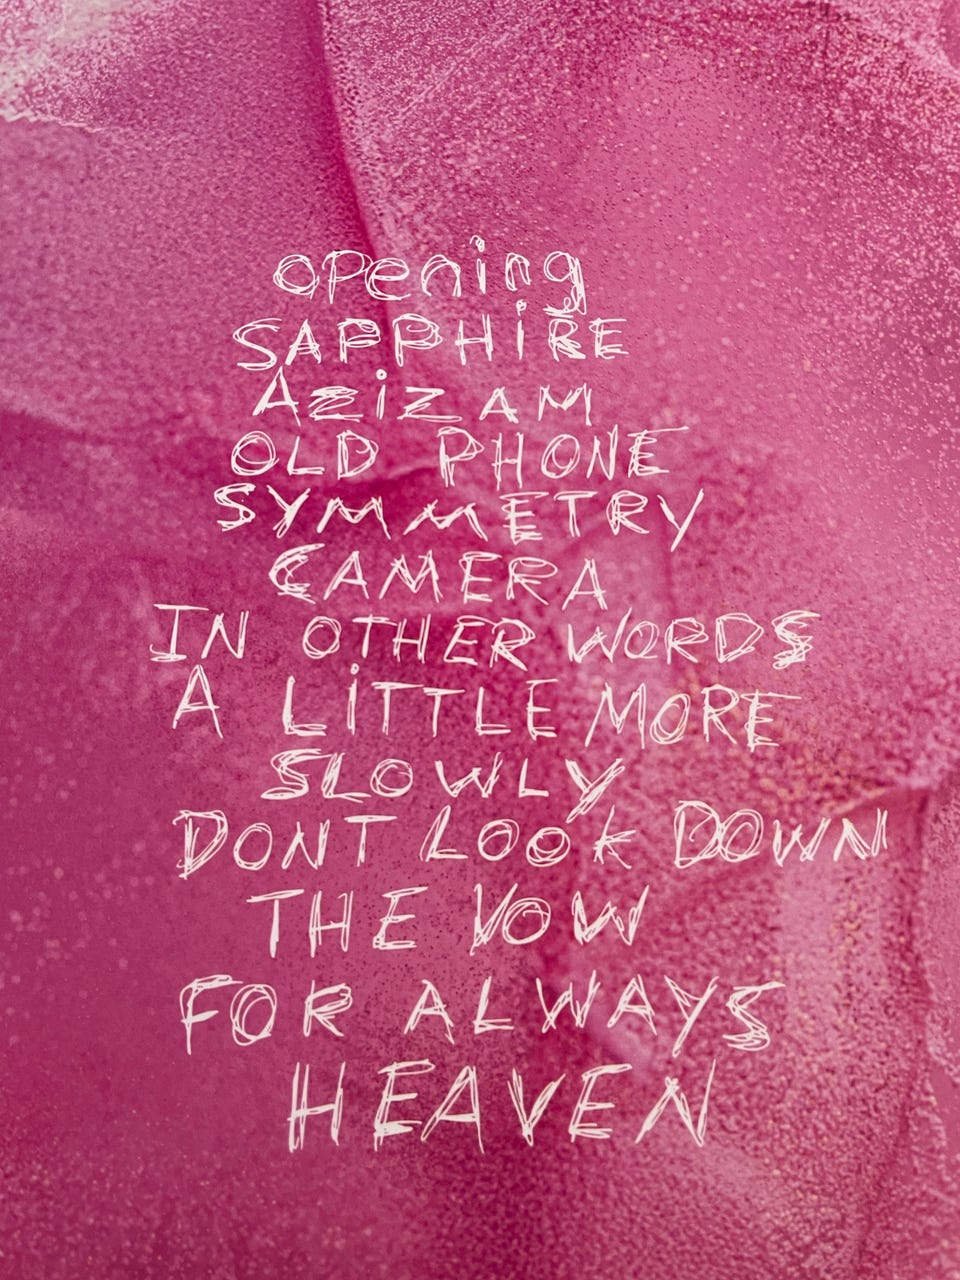 opening
SAPPHiRE
AziZAM
OLD PHONE
SYMMETRY
CAMERA
IN OTHER WORDS
A LiTTLE MORE
SLOWLY
DONT LOOk DOWN
THE VOW
FOR ALWAYS
HEAVEN